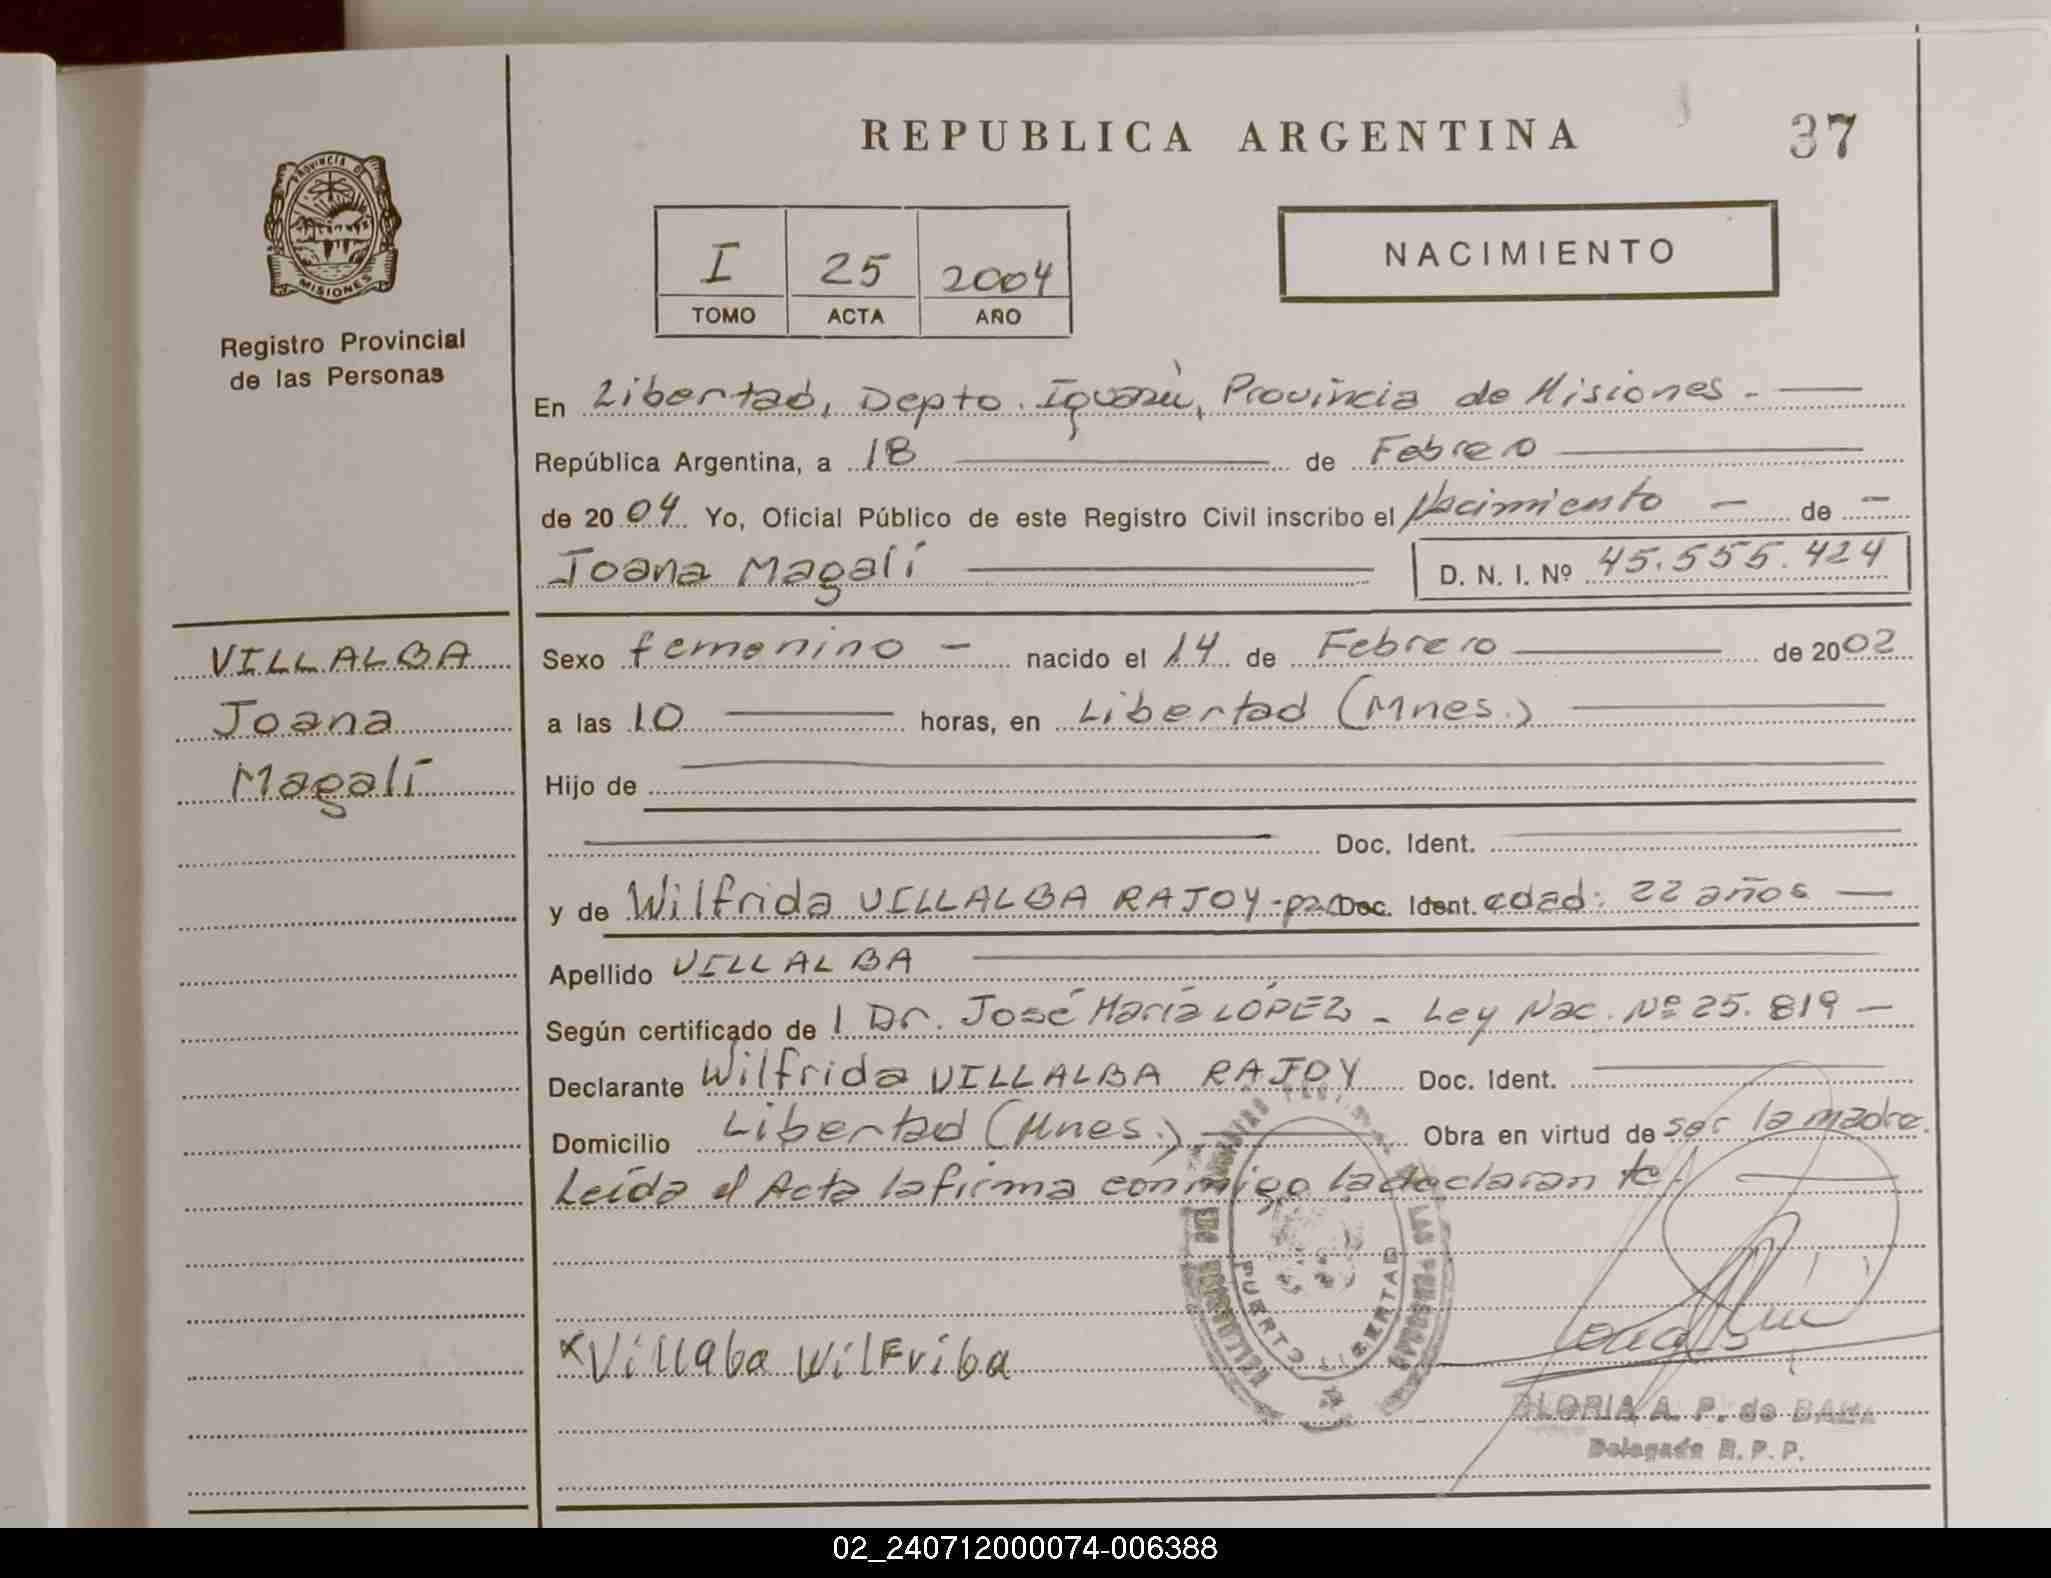 REPUBLICA ARGENTINA
37
PROVINCIA DE
MISIONES
Registro Provincial
de las Personas
I 25 2004
TOMO ACTA AÑO
NACIMIENTO
En Libertad, Depto. Iguazú, Provincia de Misiones.-
República Argentina, a 18 de Febrero
de 2004 Yo, Oficial Público de este Registro Civil inscribo el Nacimiento - de -
Joana Magalí
D. N. I. Nº 45.555.424
VILLALBA
Joana
Magalí
Sexo femenino - nacido el 14 de Febrero de 2002
a las 10 horas, en Libertad (Mnes.)
Hijo de
Doc. Ident.
y de Wilfrida VILLALBA RAJOY - Doc. Ident. edad: 22 años
Apellido VILLALBA
Según certificado de Dr. José María LÓPEZ - Ley Nac. Nº 25.819 -
Declarante Wilfrida VILLALBA RAJOY Doc. Ident.
Domicilio Libertad (Mnes.) Obra en virtud de ser la madre.
Leída el Acta la firma conmigo la declarante.
PUERTO LIBERTAD
x Villaba Wilfriba
GLORIA A. P. de
Delegada R. P. P.
02_240712000074-006388